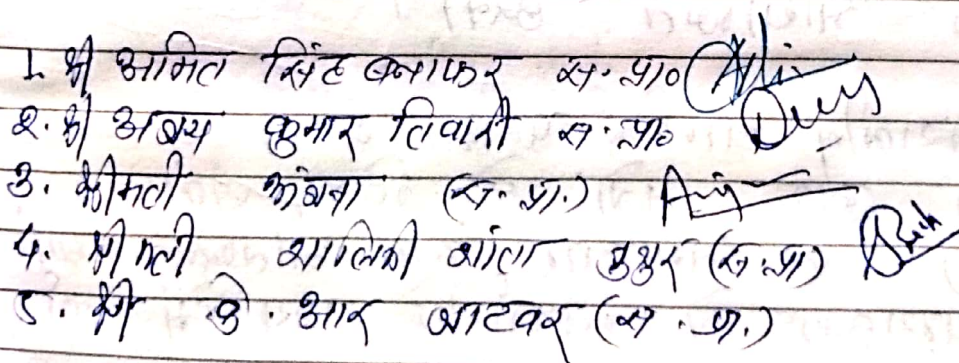 1. श्री अमित सिंह बनाफर स. प्रा०
2. श्री अजय कुमार तिवारी स. प्रा०
3. श्रीमती अंजना (स. प्रा.)
4. श्रीमती शालिनी शांता कुजूर (स. प्रा)
5. श्री के. आर खाटवर (स. प्रा.)